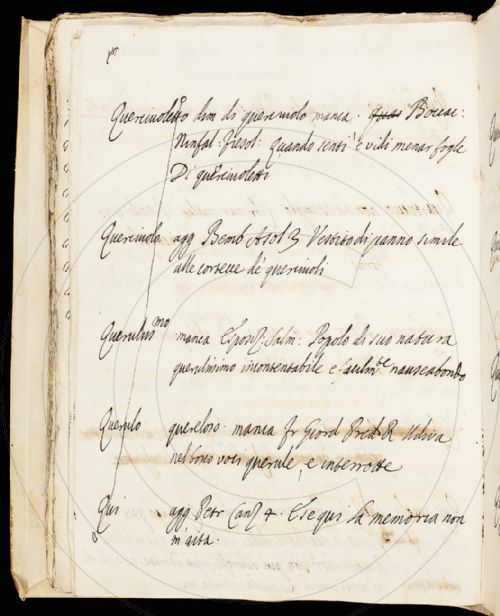 Querciuoletto dim di querciuolo manca. quas Boccac:
Ninfal: Fiesol: Quando sentì e vidi menar foglie
Di querciuoletti
Querciuolo agg Bemb Asol 3 Vestito di panno simile
alle cortecce de querciuoli
Querulissmo manca Espos. Salm: Popolo di sua natura
querulissimo incontentabile e facilmte nauseabondo
Querulo quereloso. manca Fr Giord Pred R Udiva
nel bosco voci querule, e interrotte
Qui agg Petr Canz 4. E se qui la memoria non
m'aita.